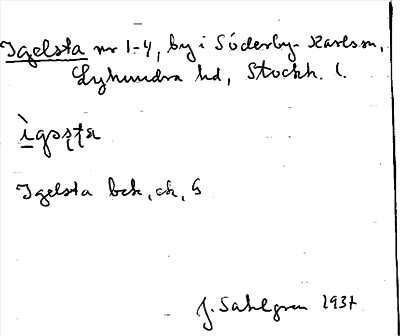 Igelsta nr 1-4, by i Söderby-Karlsson,
Lyhundra hd, Stockh. l.
ìgəsta
Igelsta bek, ek, G
J. Sahlgren 1937